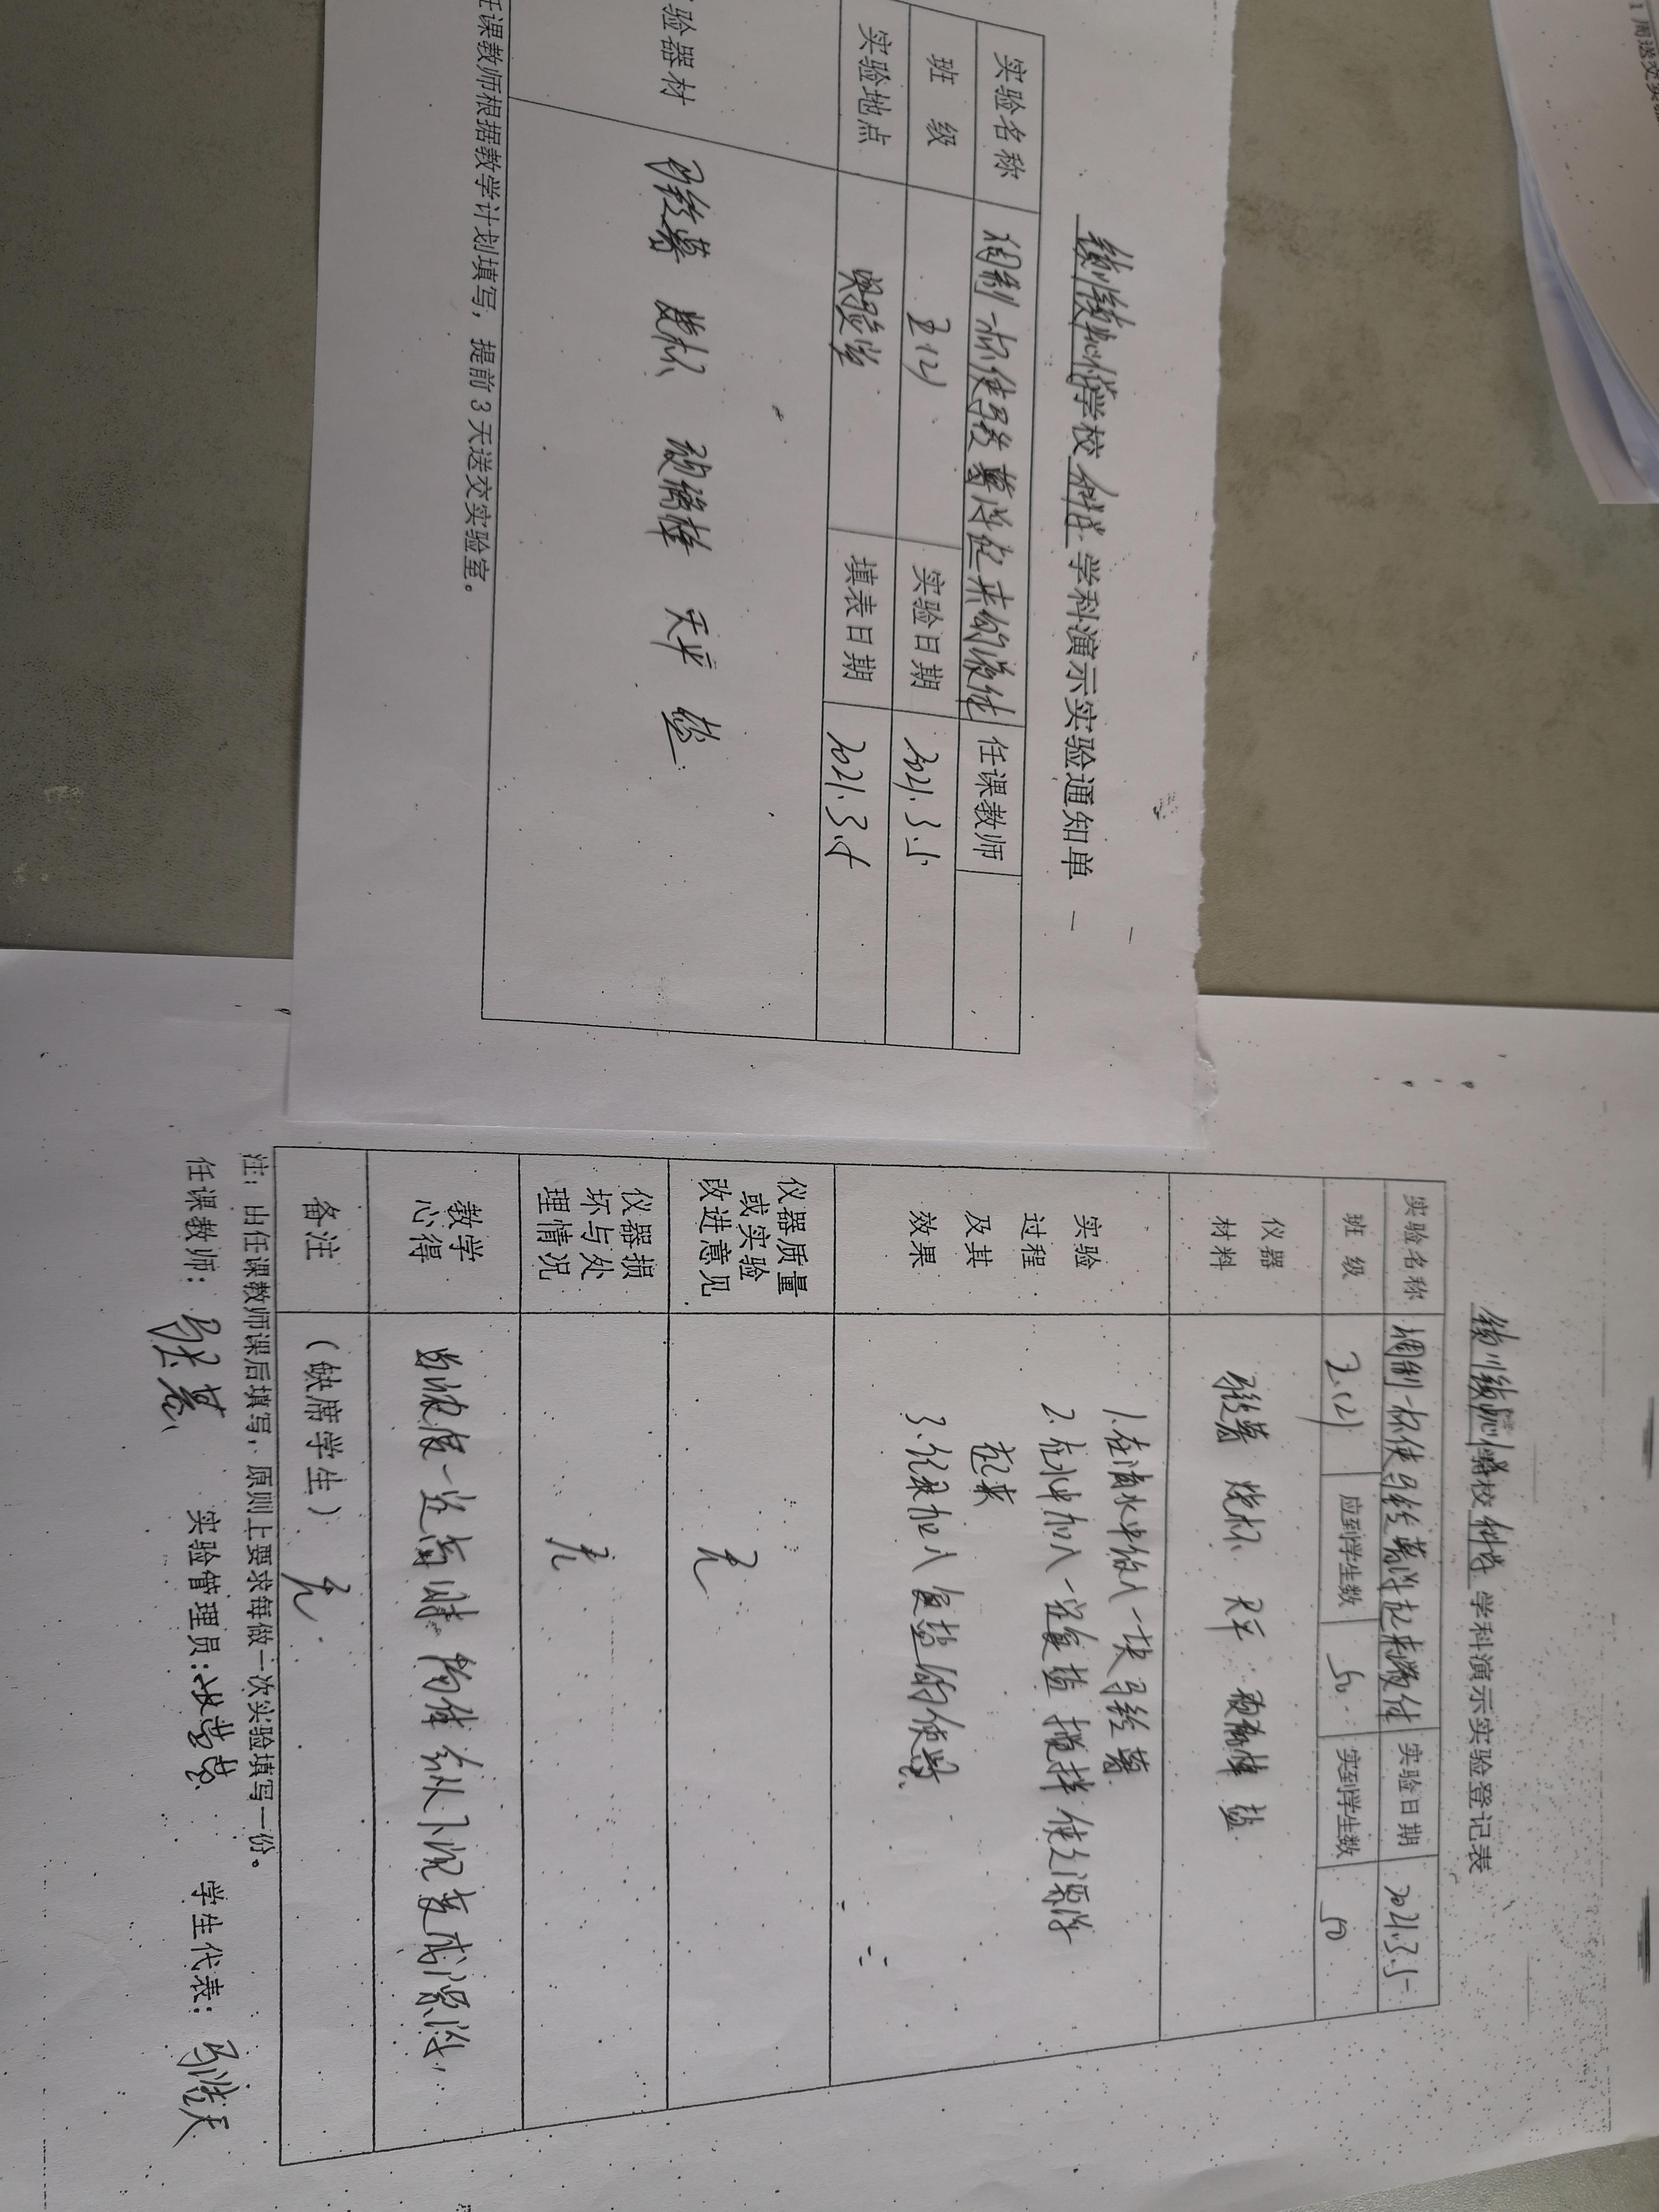 学校 科学 学科演示实验通知单
实验名称 调制一杯使马铃薯浮起来的液体 任课教师
班 级 三(2) 实验日期 2021.3.5
实验地点 实验室 填表日期 2021.3.4
验器材 马铃薯 烧杯 玻璃棒 天平 盐
任课教师根据教学计划填写，提前3天送交实验室。
校 科学 学科演示实验登记表
实验名称 调制一杯使马铃薯浮起来液体 实验日期 2021.3.5
班 级 三(2) 应到学生数 50 实到学生数 50
仪器
材料
马铃薯 烧杯 天平 玻璃棒 盐
实验
过程
及其
效果
1.在清水中放入一块马铃薯
2.在水中加入一定量盐 搅拌 使之漂浮
起来
3.记录加入食盐的
仪器质量
或实验
改进意见
无
仪器损
坏与处
理情况
无
教学
心得
当浓度一定高时 物体 会从下沉变成漂浮，
备注
（缺席学生） 无
注：由任课教师课后填写，原则上要求每做一次实验填写一份。
任课教师： 实验管理员： 学生代表：
1周送交实验